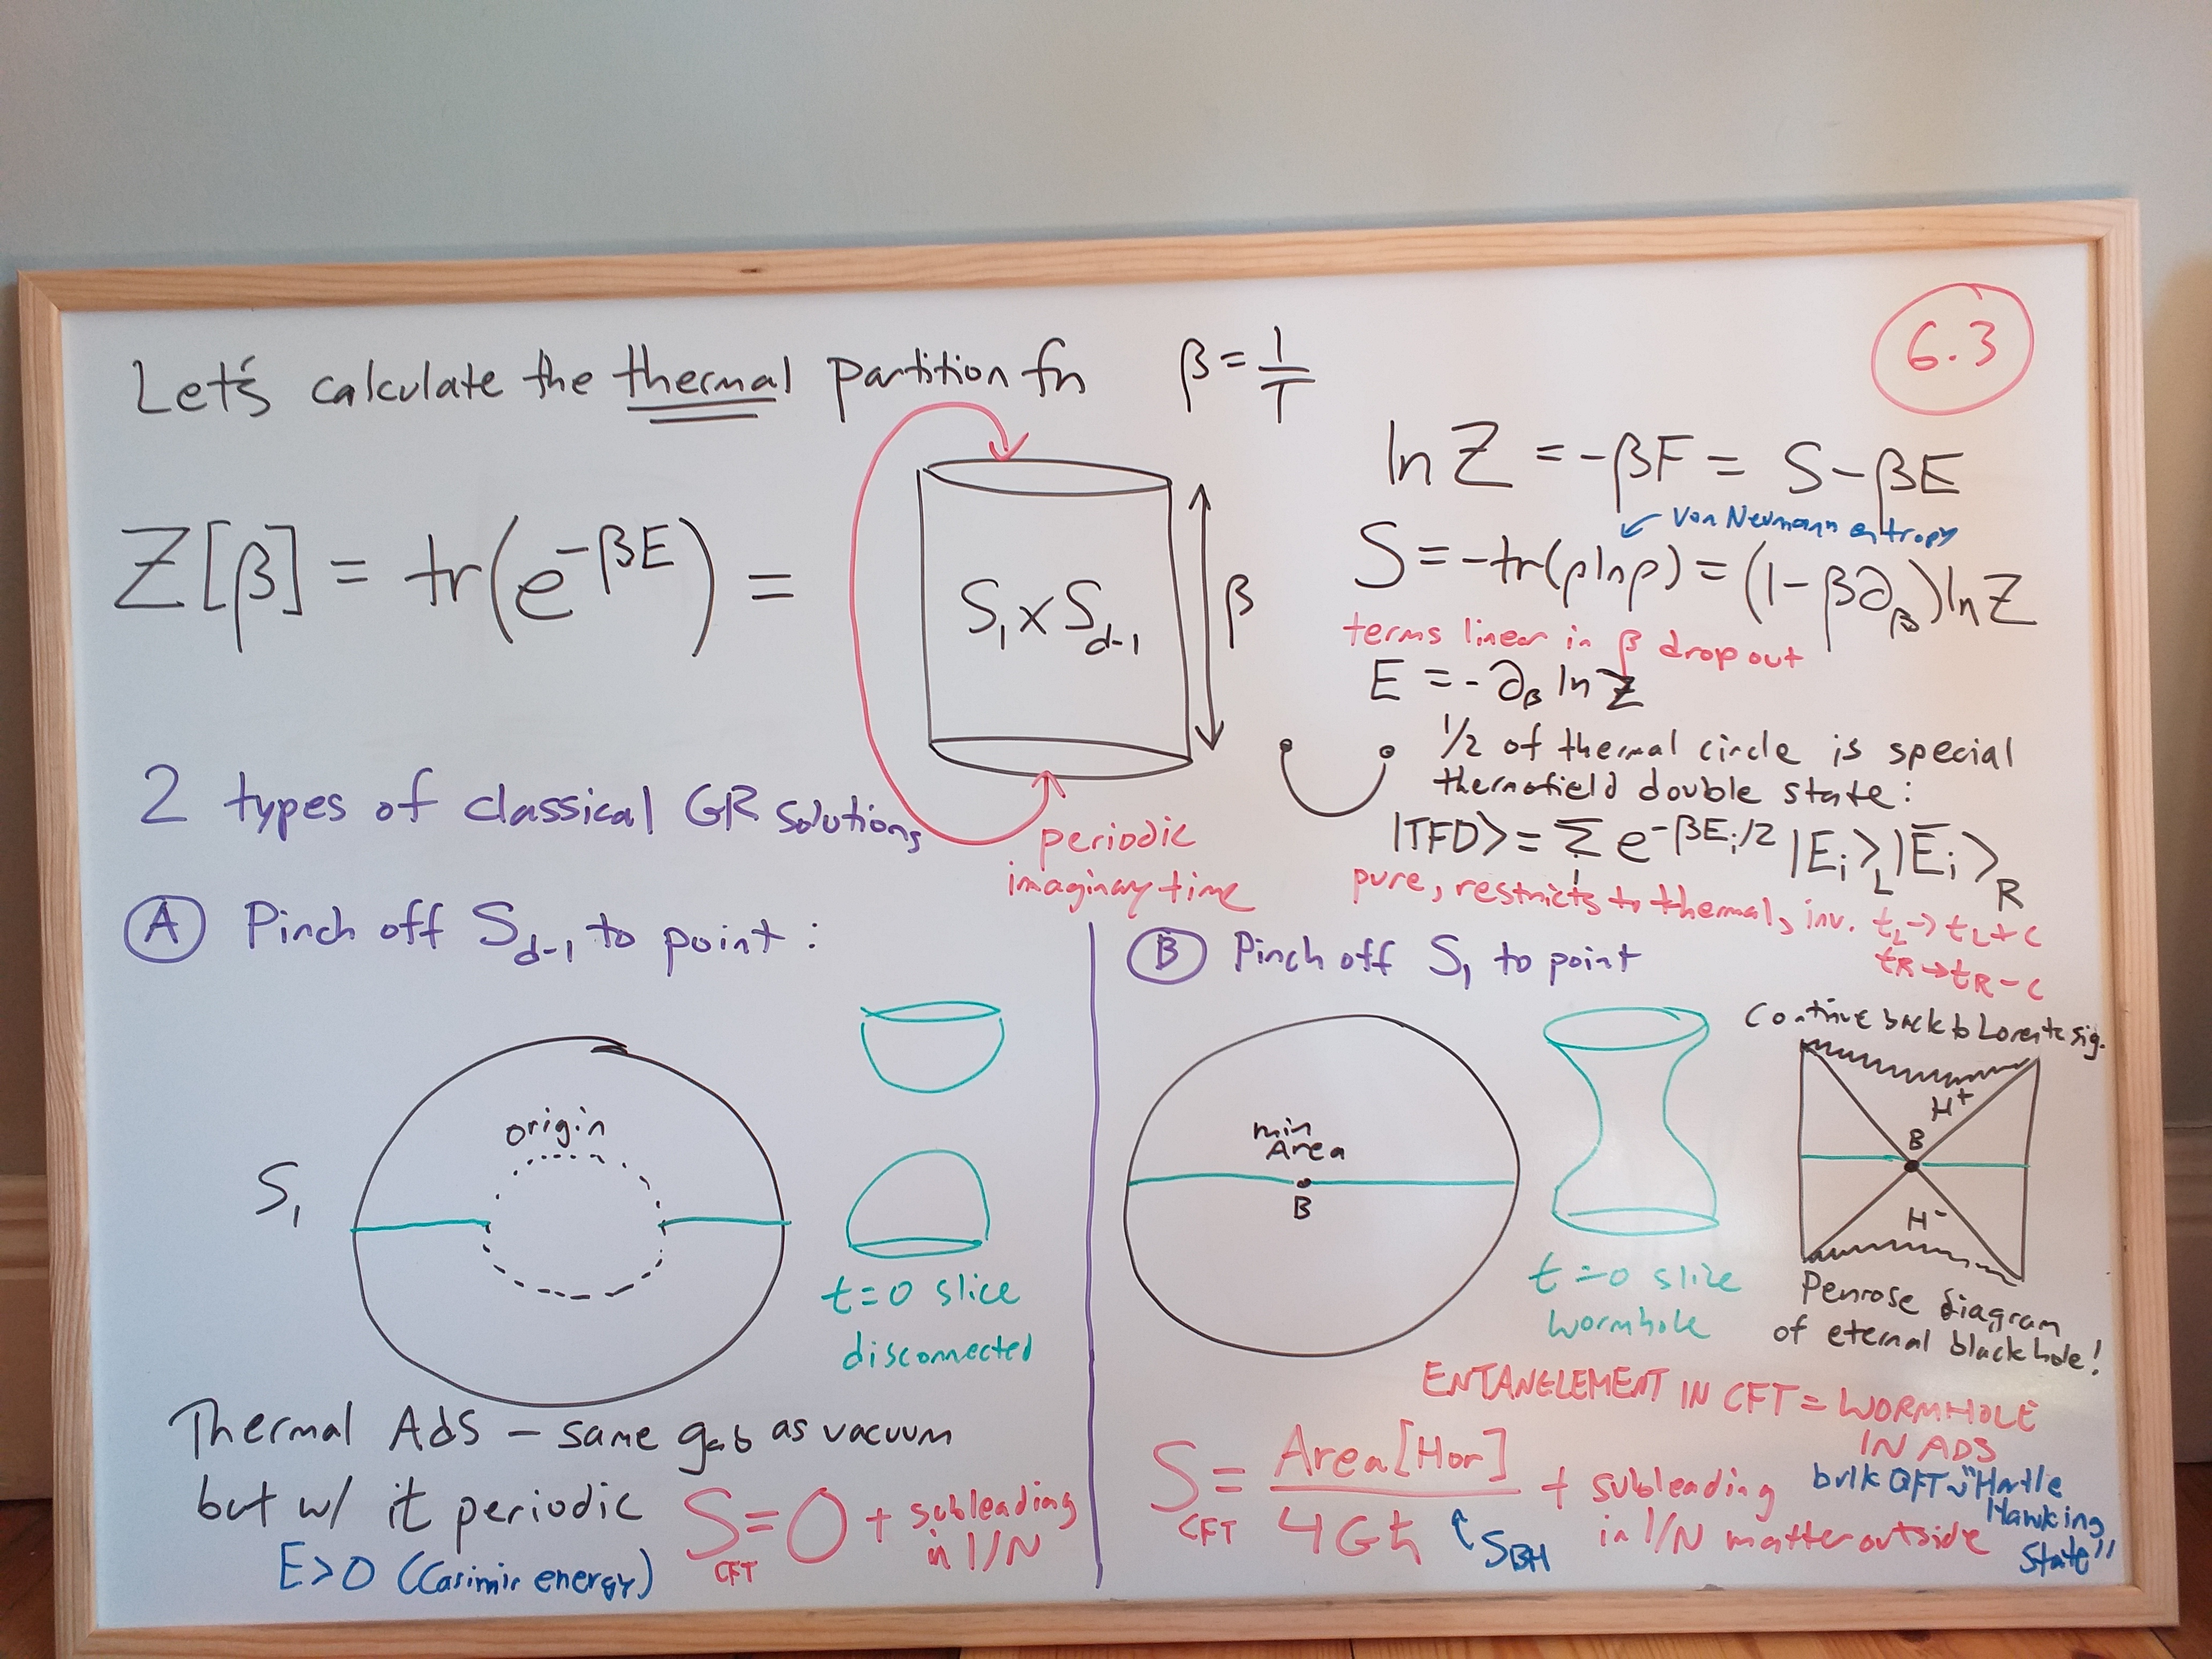 Let's calculate the thermal partition fn β = 1/T
6.3
Z[β] = tr(e^{-βE}) =
S₁ x S_{d-1}
β
periodic
imaginary time
ln Z = -βF = S - βE
Von Neumann entropy
S = -tr(ρlnρ) = (1 - β∂_β) ln Z
terms linear in β drop out
E = - ∂_β ln Z
1/2 of thermal circle is special
thermofield double state:
|TFD> = Σ_i e^{-βE_i/2} |E_i>_L |Ē_i>_R
pure, restricts to thermal, inv. t_L → t_L + c
t_R → t_R - c
2 types of classical GR solutions
A Pinch off S_{d-1} to point :
origin
S₁
t=0 slice
disconnected
Thermal AdS - same g_{ab} as vacuum
but w/ it periodic
E>0 (Casimir energy)
S_{CFT} = 0 + subleading
in 1/N
B Pinch off S₁ to point
min
Area
B
t=0 slice
wormhole
Continue back to Lorentz sig.
H⁺
B
H⁻
Penrose diagram
of eternal black hole!
ENTANGLEMENT IN CFT = WORMHOLE
IN ADS
S_{CFT} = Area[Hor] / 4Għ + subleading
in 1/N matter outside
S_{BH}
bulk QFT ~ "Hartle
Hawking
State"